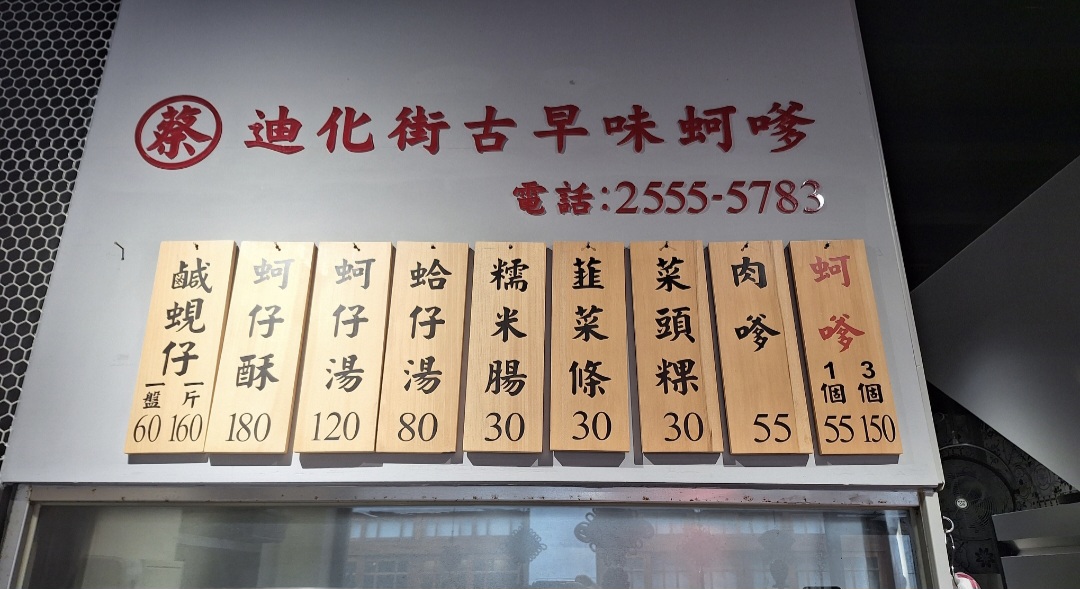 蔡 迪化街古早味蚵嗲
電話:2555-5783
蚵嗲 1個 55 3個 150
肉嗲 55
菜頭粿 30
韮菜條 30
糯米腸 30
蛤仔湯 80
蚵仔湯 120
蚵仔酥 180
鹹蜆仔 一盤 60 一斤 160